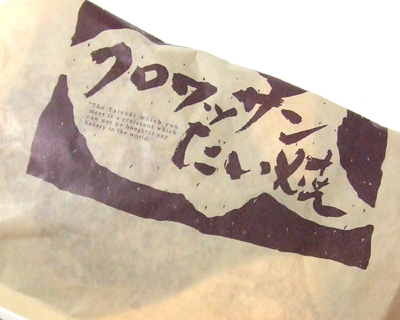 クロワッサン
たい焼
"The Taiyaki which you
ment is a croissant which
can not be boughtat any
bakery in the world."